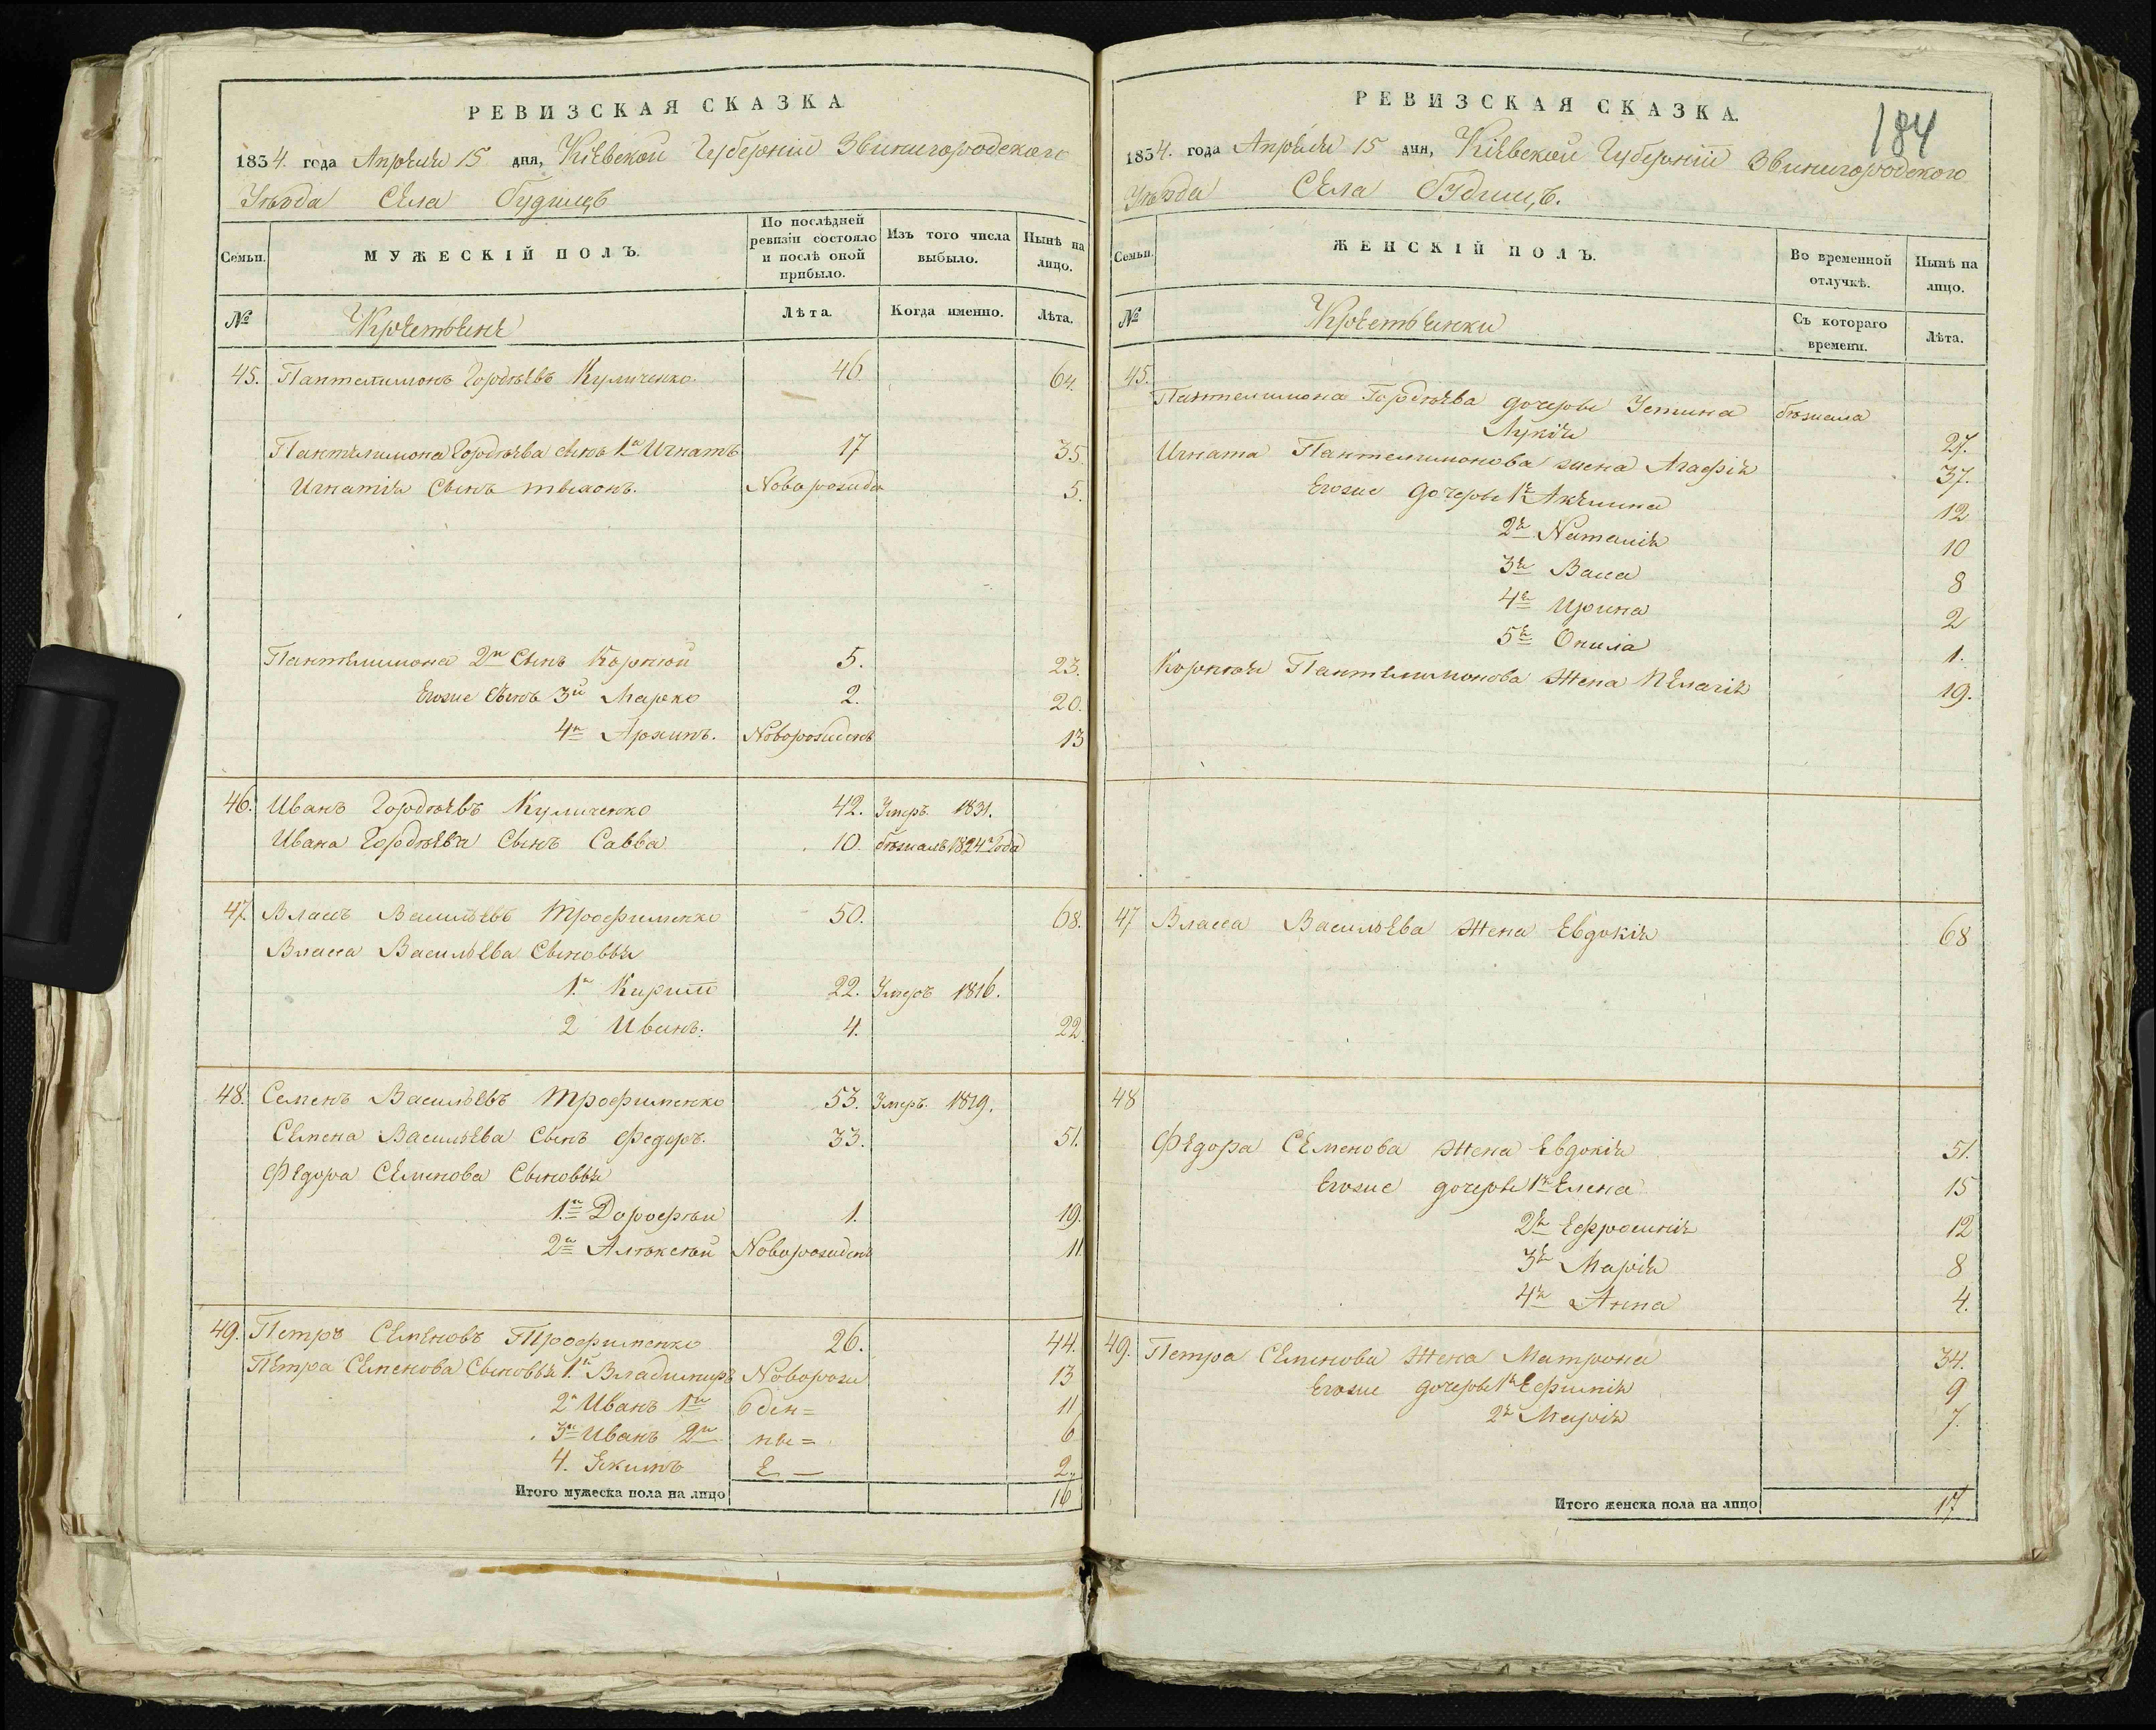 РЕВИЗСКАЯ СКАЗКА
1834. года Апреля 15 дня, Кіевской Губерніи Звенигородского
Уѣзда Села Будищъ
Семьи.
МУЖЕСКІЙ ПОЛЪ.
По послѣдней ревизіи состояло и послѣ оной прибыло.
Изъ того числа выбыло.
Нынѣ на лицо.
№
Крестьяне
Лѣта.
Когда именно.
Лѣта.
45. Пантелимонъ Гордѣевъ Куличенко. 46 64.
Пантелимона Гордѣева сынъ 1й Игнатъ 17 35.
Игнатія сынъ Новорожден 5.
Пантелимона 2й сынъ Корнѣй 5. 23.
Егоже сынъ 3й Марко 2. 20.
4й Архипъ. Новорожденъ 13
46. Иванъ Гордѣевъ Куличенко 42. Умеръ 1831.
Ивана Гордѣева сынъ Савва 10. бѣжалъ 1824 года
47 Власъ Васильевъ Трофименко 50. 68.
Власа Васильева сыновья
1й Кирилъ 22. Умеръ 1816.
2 Иванъ. 4. 22.
48. Семенъ Васильевъ Трофименко 53. Умеръ 1819.
Семена Васильева сынъ Федоръ. 33. 51.
Федора Семенова сыновья
1й Дорофей 1. 19.
2й Алексѣй Новорожденъ 11.
49. Петръ Семеновъ Трофименко 26. 44.
Петра Семенова сыновья 1й Владимиръ Новорож 13
2й Иванъ 1й ден= 11
3й Иванъ 2й ны= 6
4. Якимъ е — 2.
Итого мужеска пола на лицо 16
РЕВИЗСКАЯ СКАЗКА.
184
1834. года Апреля 15 дня, Кіевской Губерніи Звенигородского
Уѣзда Села Будищъ.
Семьи.
ЖЕНСКІЙ ПОЛЪ.
Во временной отлучкѣ.
Нынѣ на лицо.
№
Крестьянки
Съ котораго времени.
Лѣта.
45.
Пантелимона Гордѣева дочеры Устина бѣжала
Лукія 27.
Игната Пантелимонова жена Агафія 37.
Егоже дочеры 1я Акилина 12
2я Наталія 10
3я Васса 8
4я Ирина 2
5я 1.
Корнѣя Пантелимонова жена Пелагія 19.
47 Власса Васильева жена Евдокія 68
48
Федора Семенова жена Евдокія 51.
Егоже дочеры 1я Елена 15
2я Ефросинія 12
3я Марія 8
4я Анна 4.
49. Петра Семенова жена Матрона 34.
Егоже дочеры 1я Ефимія 9
2я Марія 7.
Итого женска пола на лицо 17